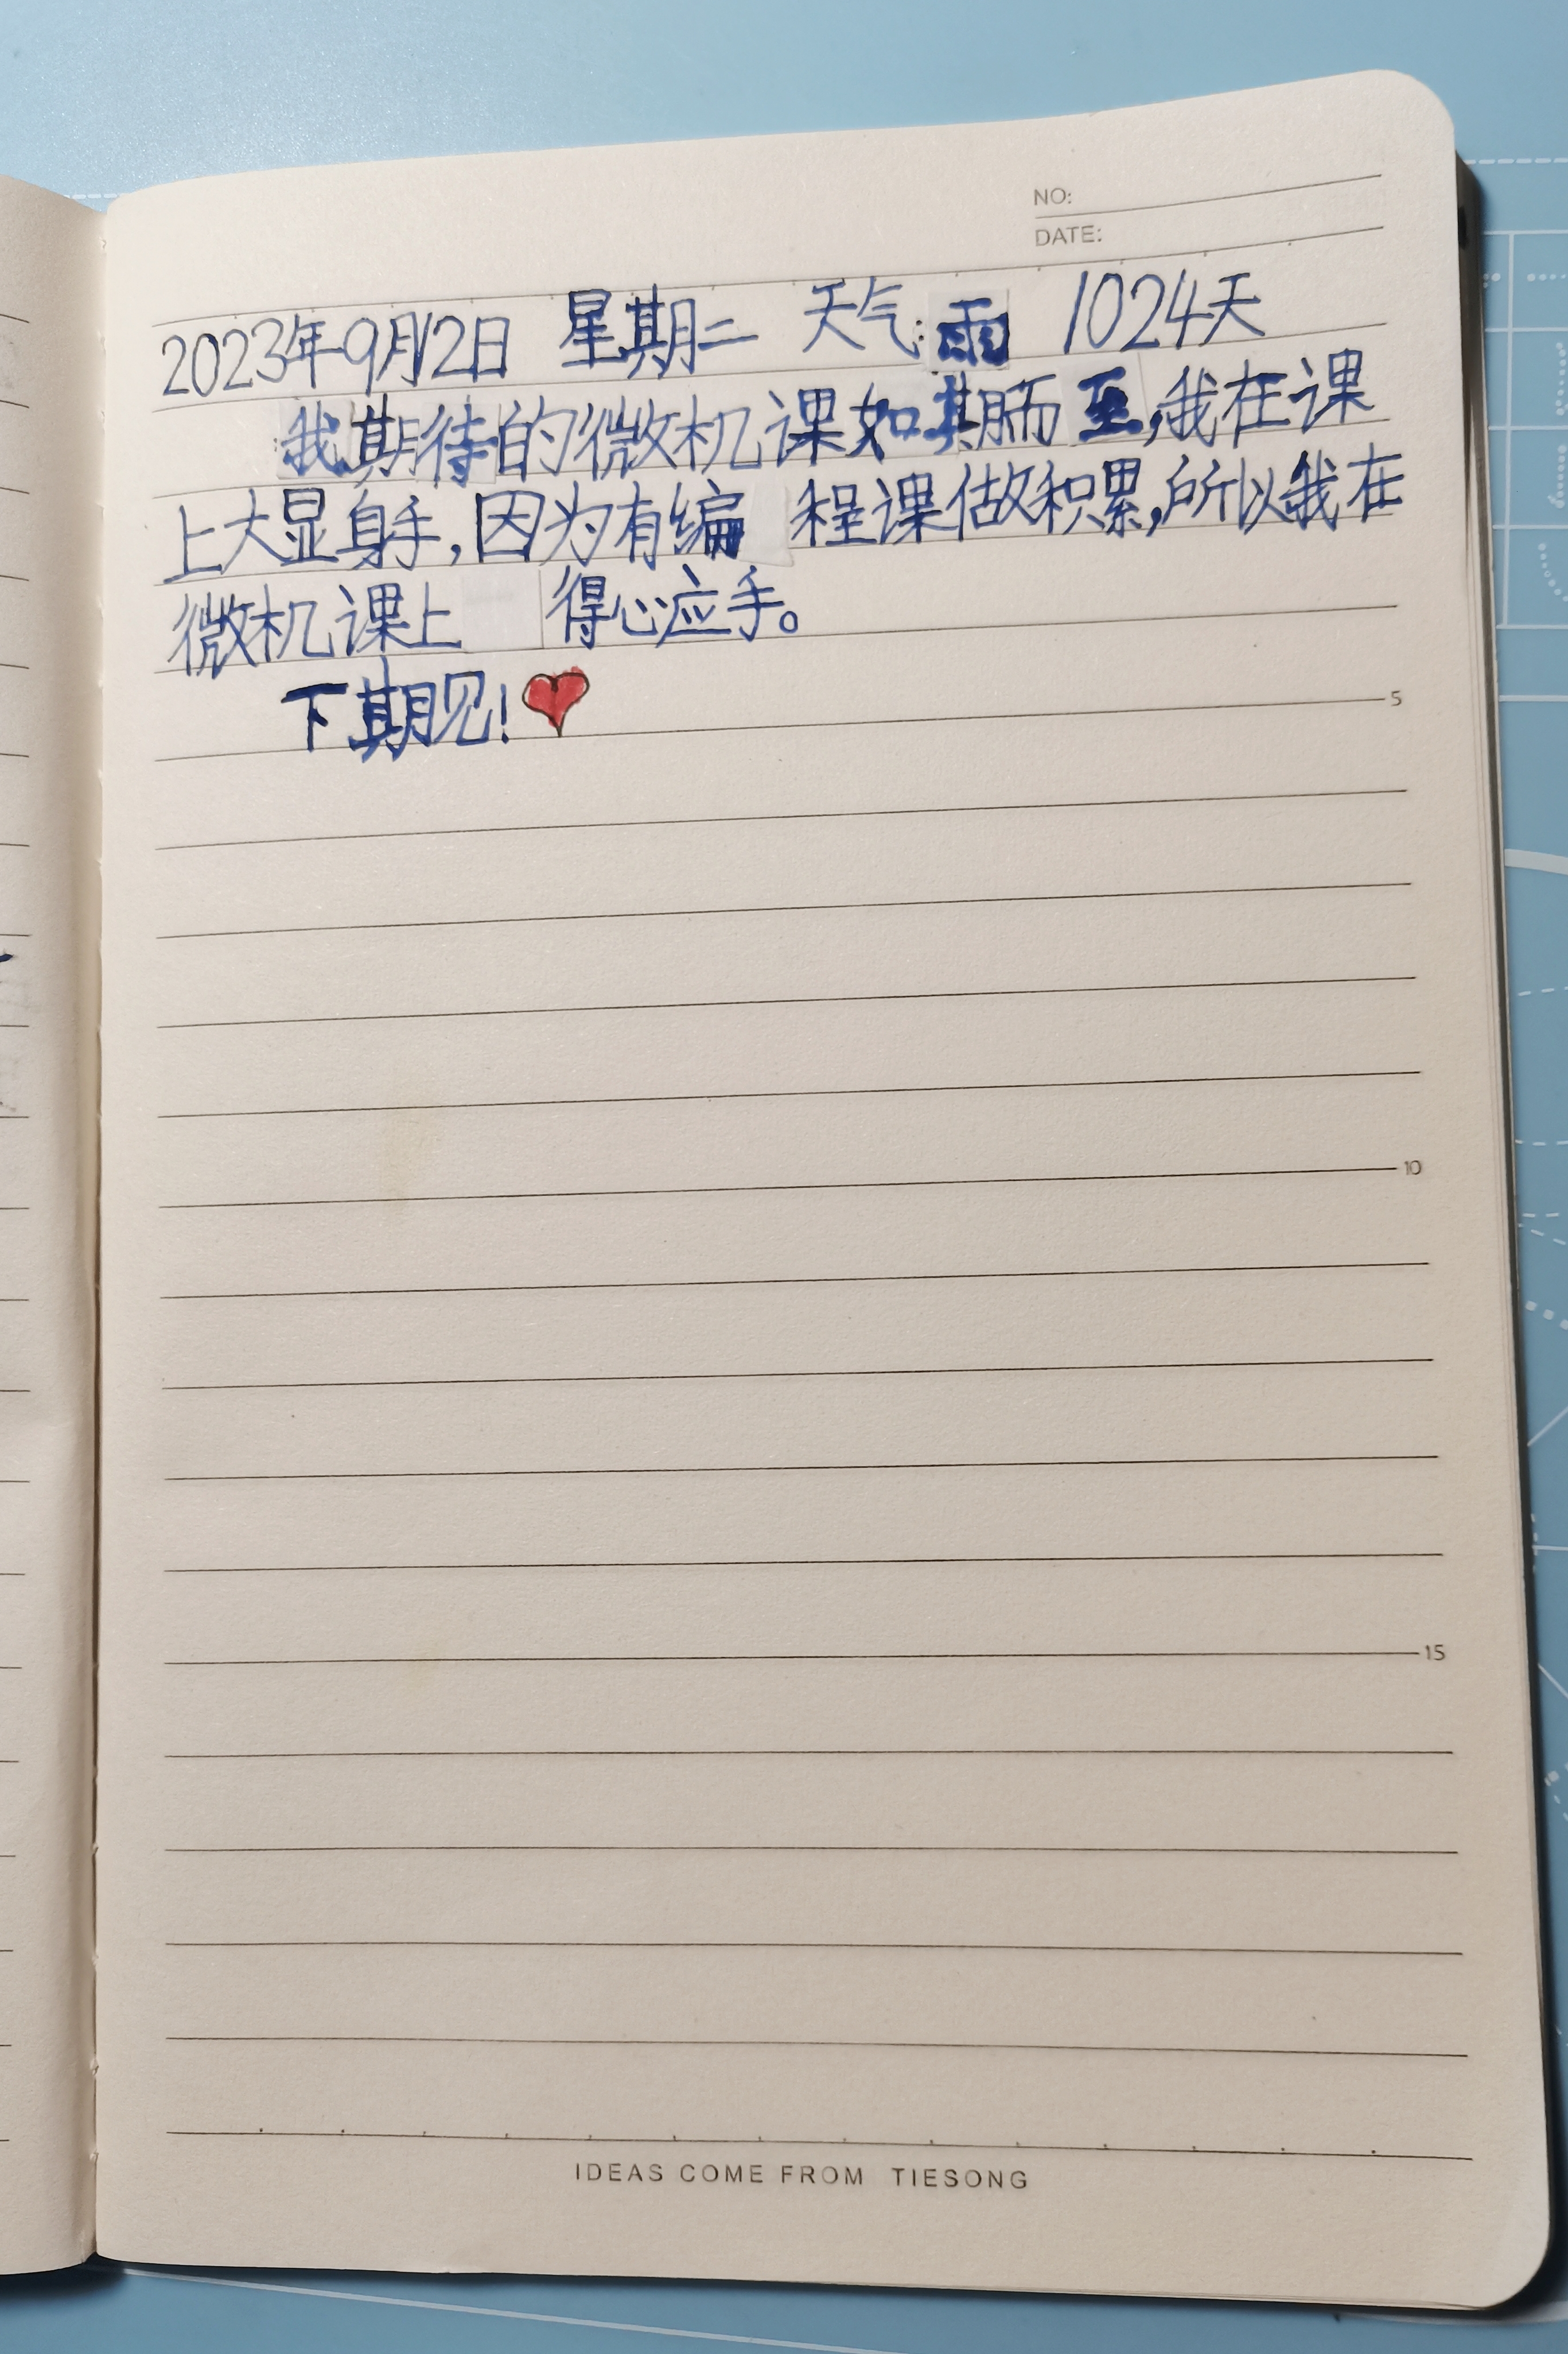 NO:
DATE:
2023年9月12日 星期二 天气:雨 1024天
我期待的微机课如期而至,我在课
上大显身手,因为有编程课做积累,所以我在
微机课上 得心应手。
下期见!
5
10
15
IDEAS COME FROM TIESONG